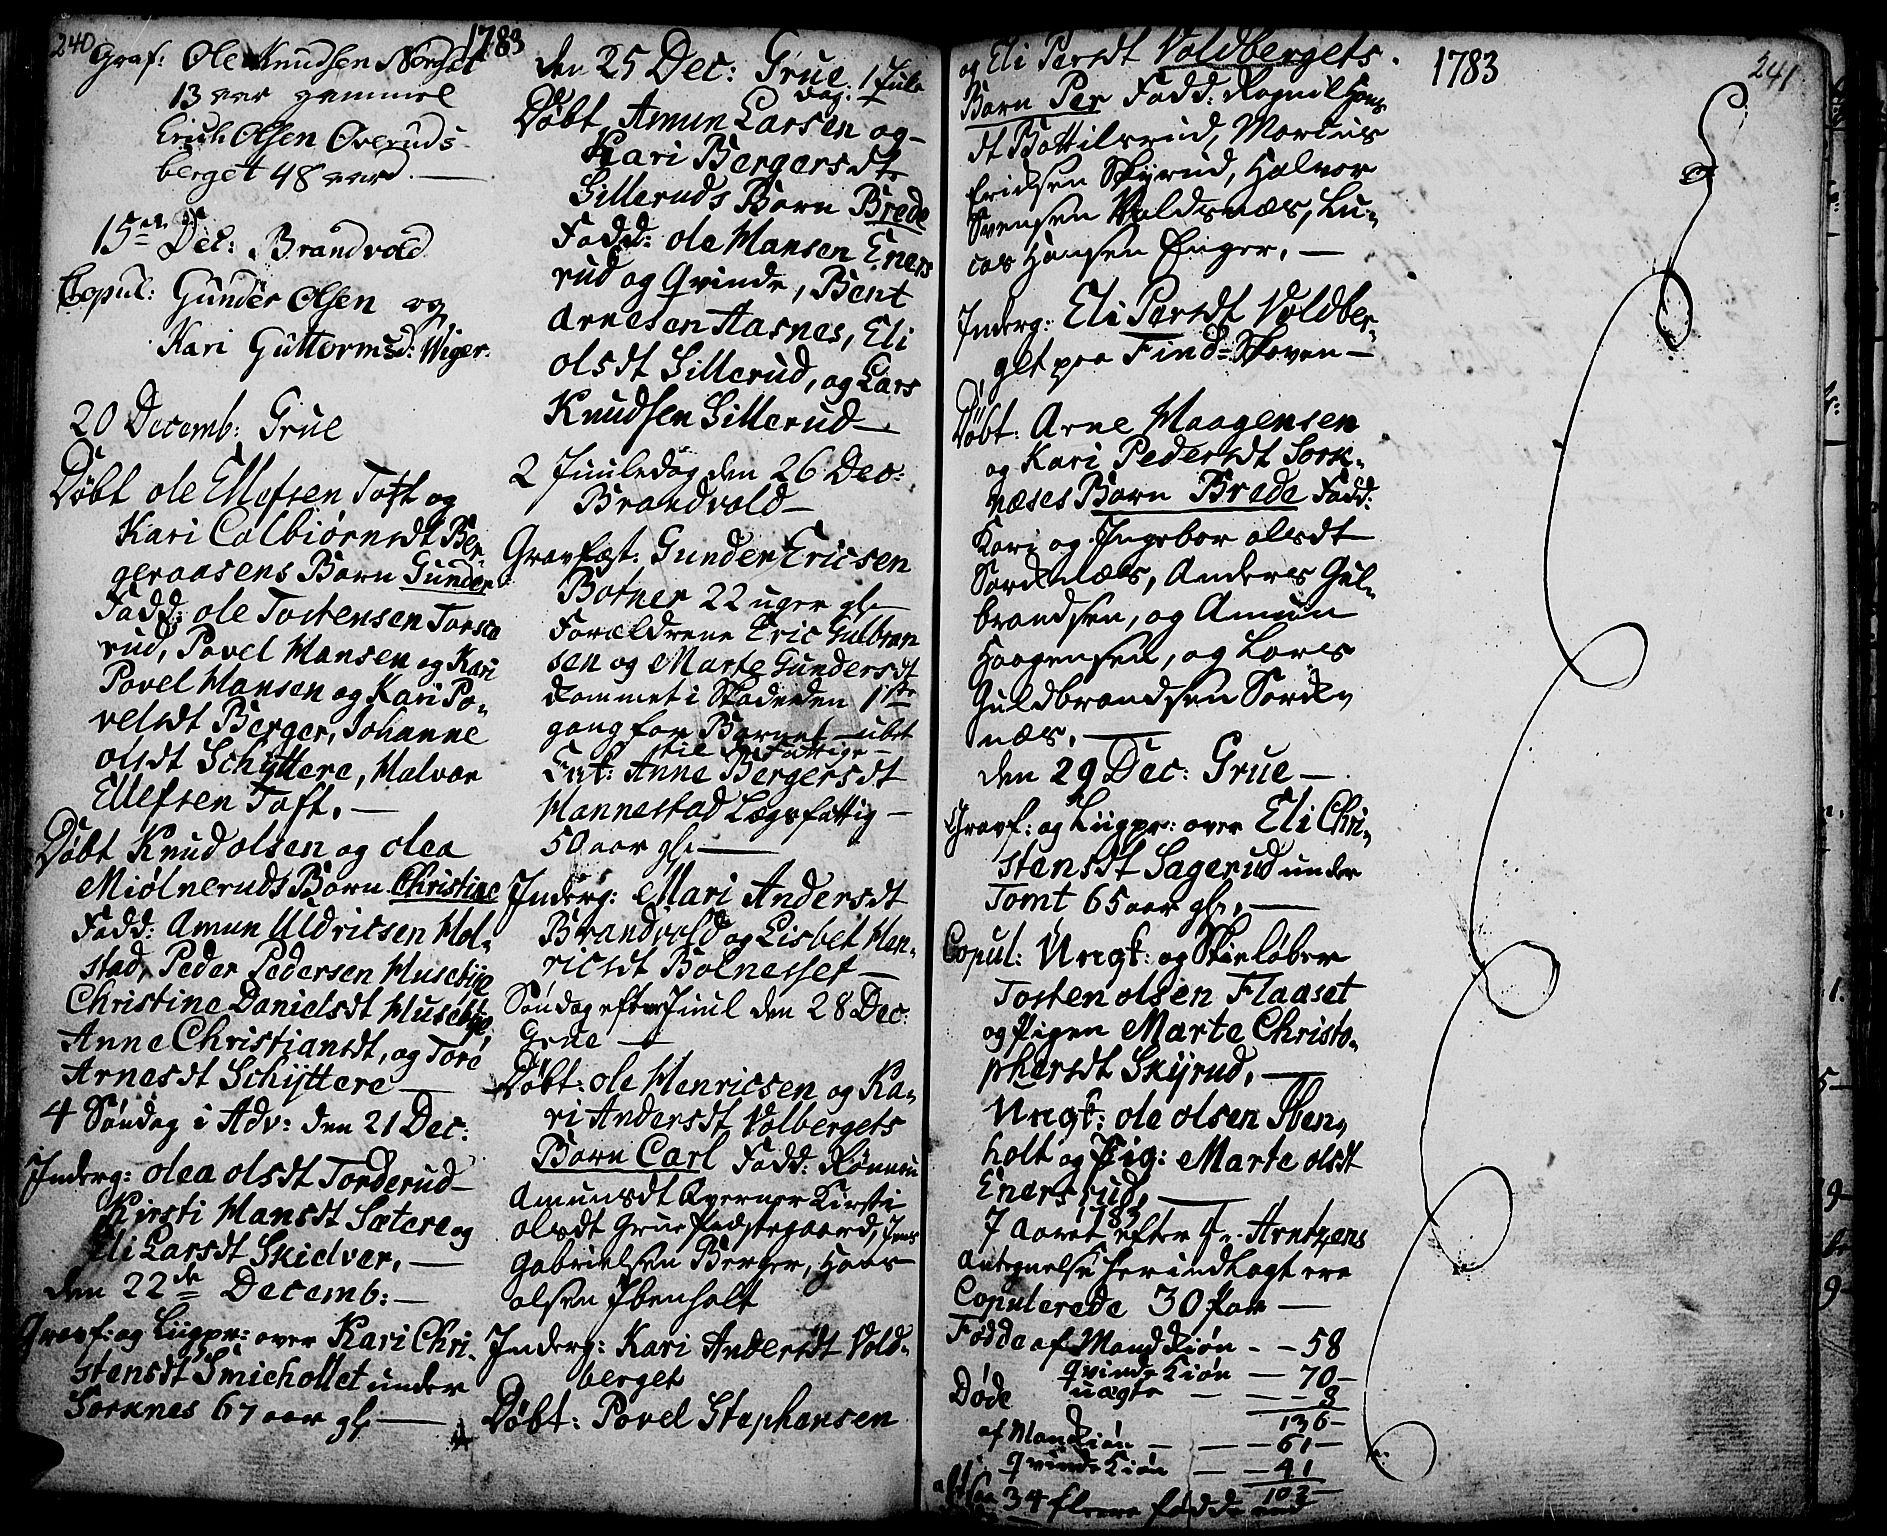 240
1783
Graf: Ole Knudsen Norset
13 aar gammel
Erich Olsen Overuds-
berget 48 aar
15de Dec: Brandvold
Copul: Gunder Olsen og
Kari Guttormsd: Wiger.
20 Decemb: Grue
Døbt ole Ellefsen Toft og
Kari Colbiørnsdt Ber-
geraasens Barn Gunder
Fadd: ole Tostensen Torse
rud, Povel Hansen og Kari
Povel Hansen og Kari Po-
velsdt Berger, Johanne
olsdt Schyttere, Halvor
Ellefsen Toft. —
Døbt Knud olsen og olea
Miølneruds Barn Christine
Fadd: Amun Uldricsen Hol-
stad, Peder Pedersen Husebye
Christine Danielsdt Husebye
Anne Christiansdt, og Tore
Arnesdt Schyttere —
4 Søndag i Adv: den 21 Dec:
Inderg: olea olsdt Torderud
Kirsti Hansdt Sætere og
Eli Larsdt Skidver. —
den 22de Decemb: —
Gravf: og Liigpr: over Kari Chri-
stensdt Smichottet under
Sorknes 67 aar gl: —
den 25 Dec: Grue. 1 Jule
dag.
Døbt Amun Larsen og
Kari Bergersdt
Silleruds Barn Brede
Fadd: ole Hansen Eners
rud og Qvinde, Bent
Arnesen Aasnes, Eli
olsdt Sillerud, og Lars
Knudsen Sillerud —
2 Juuledag den 26 Dec:
Brandvold —
Gravfæst: Gunder Ericsen
Botner 22 uger gl:
Forældrene Eric Gulbran
sen og Marte Gundersdt
kommet i Skade den 1ste
gang for Barnet — ubet
til de Fattige —
Ent: Anne Bergersdt
Hannestad Lægsfattig —
50 aar gl: —
Inderg: Mari Andersdt
Brandvold og Lisbet Hen-
ricsdt Bolnesset —
Søndag efter Juul den 28 Dec:
Grue —
Døbt: ole Henricsen og Ka-
ri Andersdt Volbergets
Barn Carl Fadd: Rønnau
Amunsdt Qverner Kirsti
olsdt Grue Præstegaard, Jens
Gabrielsen Berger, Hans
olsen Ibenholt
Inderg: Kari Andersdt Vold-
berget
Døbt: Povel Stephansen
og Eli Persdt Voldbergets.
Barn Per Fadd: Ragnil Hans
dt Bottilsrud, Marcus
Ericsen Skyrud, Halvor
Svensen Valdsnæs, Lu-
cas Hansen Enger. —
Inderg: Eli Persdt Voldber-
get paa Find-Skoven —
Døbt: Arne Haagensen
og Kari Pedersdt Sork-
næses Barn Brede Fadd:
Kari og Ingebor olsdt
Sorknæs, Anders Gul-
brandsen, og Amun
Haagensen, og Lars
Guldbrandsen Sork-
næs. —
den 29 Dec: Grue —
Gravf: og Liigpr: over Eli Chri-
stensdt Sagerud under
Tomt 65 aar gl: —
Copul: Ungk: og Skieløber
Tosten olsen Flaaset
og Pigen Marte Christo-
phersdt Skyrud. —
Ungk: ole olsen Iben-
holt og Pig: Marte olsdt
Enersrud. —
1783
I Aaret efter Hr. Arntzens
Antegnelse her indlagt ere
Copulerede 30 Par —
Fødde af Mandkiøn - - 58
Qvinde Kiøn — 70 —
uægte — — 8
136 —
Døde
af Mankiøn — — 61 —
Qvinde Kiøn — — 41
103 —
altsaa 34 fleere fødde end
1783
241